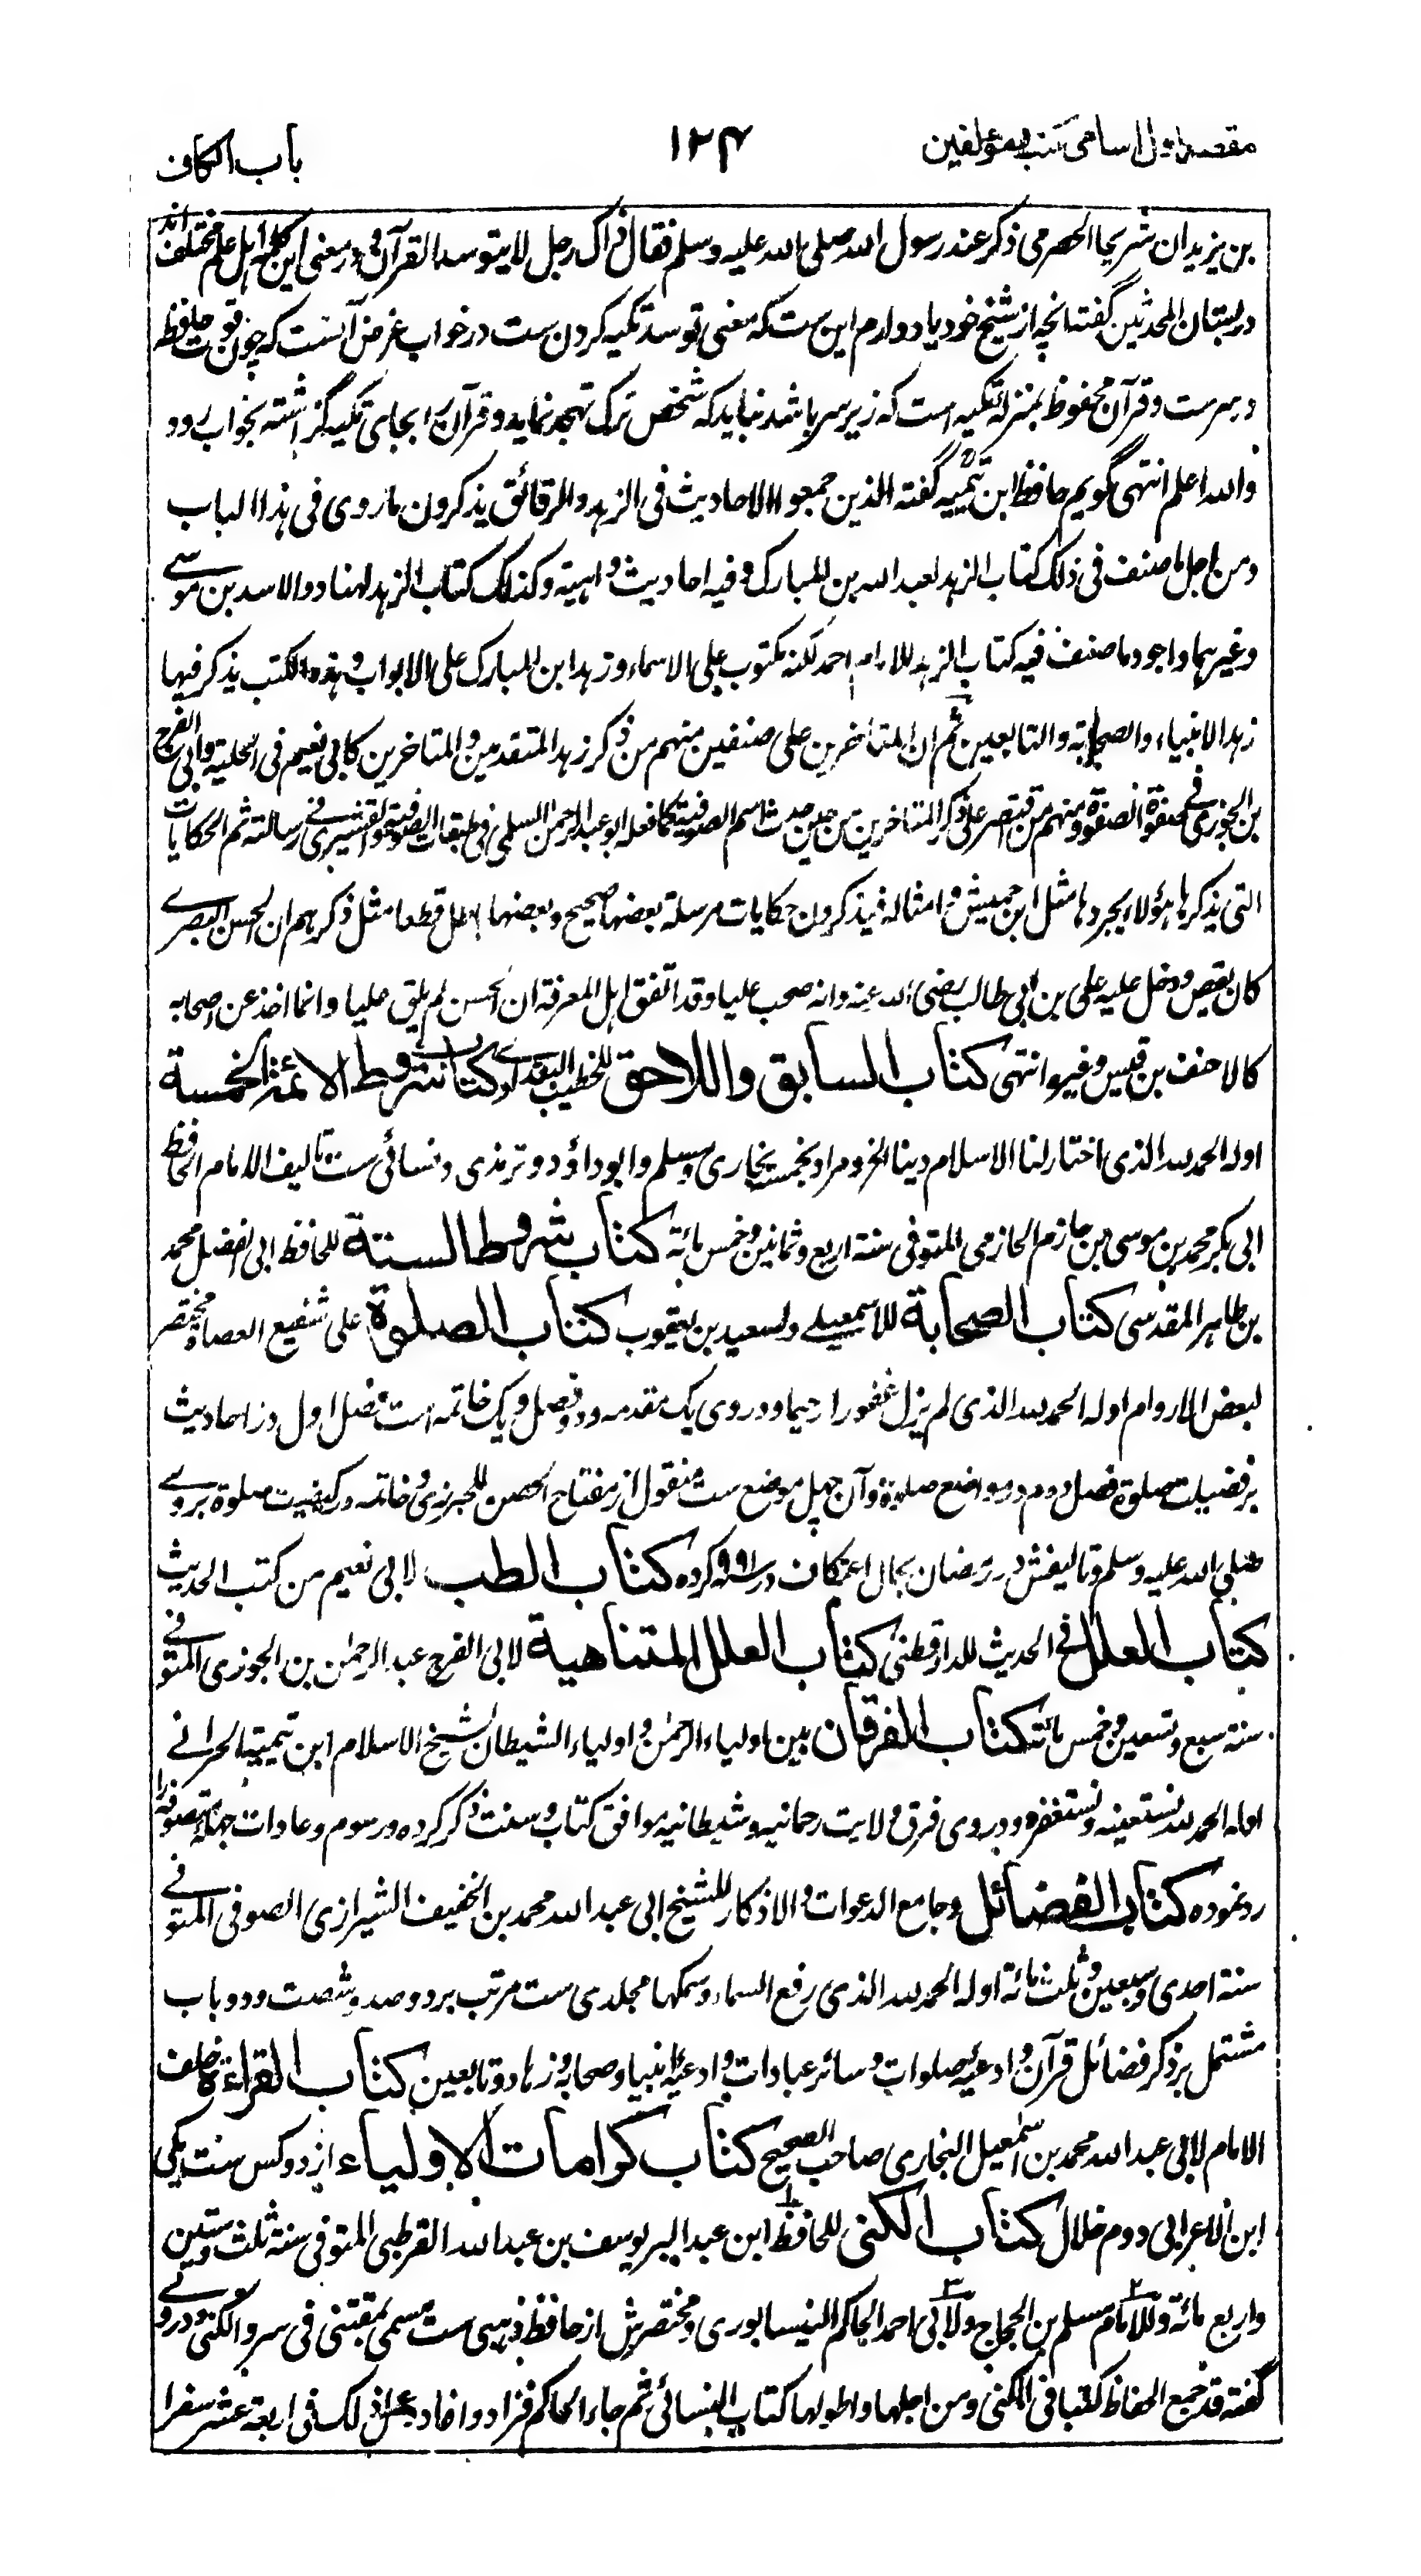 مقصد اول اسامی کتب و مؤلفین ۱۳۴ باب الکاف
بن یزید ان شریحا الحضرمی ذکر عند رسول الله صلی الله علیه وسلم فقال ذاک رجل لا یتوسد القرآن و در معنی این کلمه اهل علم مختلف اند
در بستان المحدثین گفته انچه از شیخ خود یاد دارم این ست که معنی توسد تکیه کردن ست در خواب غرض آنست که چون قوت حافظه
در سرست و قرآن محفوظ بمنزله تکیه است که زیر سر باشد نباید که شخص ترک تهجد نماید و قرآن را بجای تکیه گزاشته بخواب رود
والله اعلم انتهی گویم حافظ ابن تیمیه گفته الذین جمعوا الاحادیث فی الزهد والرقائق یذکرون ما روی فی هذا الباب
ومن اجل ما صنف فی ذلک کتاب الزهد لعبد الله بن المبارک وفیه احادیث واهیة وکذلک کتاب الزهد لهناد والاسد بن موسی
وغیرهما واجود ما صنف فیه کتاب الزهد للامام احمد لکنه مکتوب علی الاسماء وزهد ابن المبارک علی الابواب وهذه الکتب یذکر فیها
زهد الانبیاء والصحابة والتابعین ثم ان المتأخرین علی صنفین منهم من ذکر زهد المتقدمین والمتاخرین کابی نعیم فی الحلیة وابی الفرج
بن الجوزی فی صفوة الصفوة ومنهم من قتصر علی ذکر المتاخرین من حین حدث اسم الصوفیة کما فعله ابو عبد الرحمن السلمی فی طبقات الصوفیة والقشیری فی رسالته ثم الحکایات
التی یذکرها هؤلاء بجردها مثل ابن خمیش وامثاله فیذکرون حکایات مرسلة بعضها صحیح وبعضها باطل قطعا مثل ذکرهم ان الحسن البصری
کان یقص ودخل علیه علی بن ابی طالب رضی الله عنه وانه صحب علیا وقد اتفق اهل المعرفة ان الحسن لم یلق علیا وانما اخذ عن اصحابه
کالاحنف بن قیس وغیره انتهی کتاب السابق واللاحق للخطیب البغدادی کتاب شروط الائمة الخمسة
اوله الحمد لله الذی اختار لنا الاسلام دینا الخ و مراد بخمسه بخاری و مسلم و ابو داؤد و ترمذی و نسائی ست تالیف الامام الحافظ
ابی بکر محمد بن موسی بن حازم الحازمی المتوفی سنة اربع وثمانین وخمس مائة کتاب شروط الستة للحافظ ابی الفضل محمد
بن طاهر المقدسی کتاب الصحابة للاسمعیلی ولسعید بن یعقوب کتاب الصلوة علی شفیع العصاة مختصر
لبعض الاروام اوله الحمد لله الذی لم یزل غفورا رحیما و در وی یک مقدمه و دو فصل و یک خاتمه است فصل اول در احادیث
بر فضیلت صلوة فصل دوم در مواضع صلوة و آن چهل موضع ست منقول از مفتاح الحصن للجزری و خاتمه در کیفیت صلوة بروی
صلی الله علیه وسلم و تالیفش در رمضان بحال اعتکاف در سنه ۹۹۱ کرده کتاب الطب لابی نعیم من کتب الحدیث
کتاب العلل فی الحدیث للدارقطنی کتاب العلل المتناهیة لابی الفرج عبد الرحمٰن بن الجوزی المتوفی
سنة سبع وتسعین وخمس مائة کتاب الفرقان بین اولیاء الرحمٰن واولیاء الشیطان لشیخ الاسلام ابن تیمیة الحرانی
اوله الحمد لله نستعینه ونستغفره و در وی فرق ولایت رحمانیه و شیطانیه موافق کتاب و سنت ذکر کرده و رسوم و عادات جهلهٔ متصوفه را
رد نموده کتاب الفضائل وجامع الدعوات والاذکار للشیخ ابی عبد الله محمد بن الخفیف الشیرازی الصوفی المتوفی
سنة احدی وسبعین وثلث مائة اوله الحمد لله الذی رفع السماء وسمکها مجلدی ست مرتب بر دو صد و شصت و دو باب
مشتمل بر ذکر فضائل قرآن و ادعیه صلوات و سائر عبادات و ادعیهٔ انبیا و صحابه و زهاد و تابعین کتاب القراءة خلف
الامام لابی عبد الله محمد بن اسمٰعیل البخاری صاحب الصحیح کتاب کرامات الاولیاء از دو کس ست یکی
ابن الاعرابی دوم خلال کتاب الکنی للحافظ ابن عبد البر یوسف بن عبد الله القرطبی المتوفی سنة ثلث وستین
واربع مائة وللامام مسلم بن الحجاج ولابی احمد الحاکم النیسابوری و مختصرش از حافظ ذهبی ست مسمی بمقتنی فی سرد الکنی و در وی
گفته قد جمع الحفاظ کتبا فی الکنی ومن اجلها واطولها کتاب النسائی ثم جاء الحاکم فزاد وافاد وعمل ذلک فی اربعة عشر سفرا